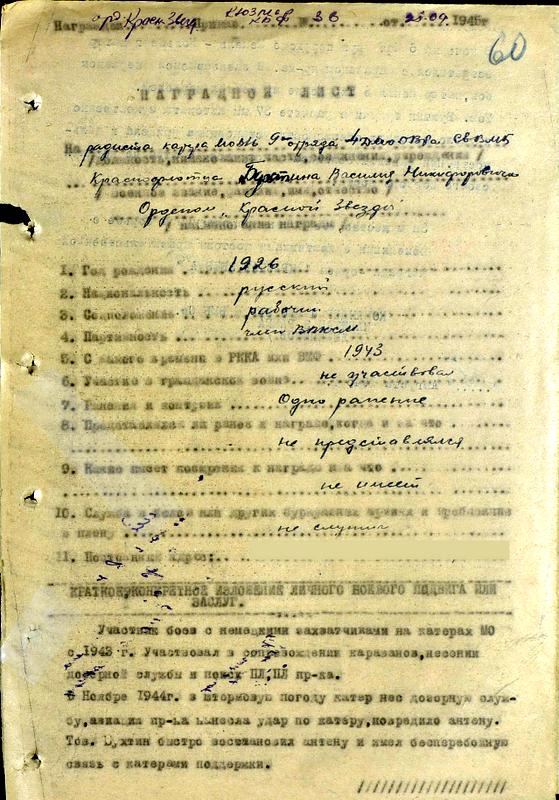 орд Красн Звезд
Награжден Приказ № 36 от 25.09 1945г
60
НАГРАДНОЙ ЛИСТ
радиста катера МО 9го отряда
На
Краснофлотца Василия Никифоровича
Орденом „Красной Звезды"
1. Год рождения 1926
2. Национальность русский
3. Соцположение рабочий
4. Партийность член ВЛКСМ
5. С какого времени в РККА или ВМФ 1943
6. Участие в гражданской войне не участвовал
7. Ранения и контузии Одно ранение
8. Представлялся ли ранее к награде, когда и за что
не представлялся
9. Какие имеет поощрения и награды и за что
не имеет
10. Служба в белой или других буржуазных армиях и пребывание
в плену не служил
11. Постоянный адрес:
КРАТКОЕ, КОНКРЕТНОЕ ИЗЛОЖЕНИЕ ЛИЧНОГО БОЕВОГО ПОДВИГА ИЛИ
ЗАСЛУГ.
Участник боев с немецкими захватчиками на катерах МО
с 1943 г. Участвовал в сопровождении караванов, несении
дозорной службы и поиск ПЛ, ПЛ пр-ка.
Ноябре 1944г. в штормовую погоду катер нес дозорную служ-
бу, авиация пр-ка нанесла удар по катеру, повредило антену.
Тов. быстро восстановил антену и имел бесперебойную
связь с катерами поддержки.